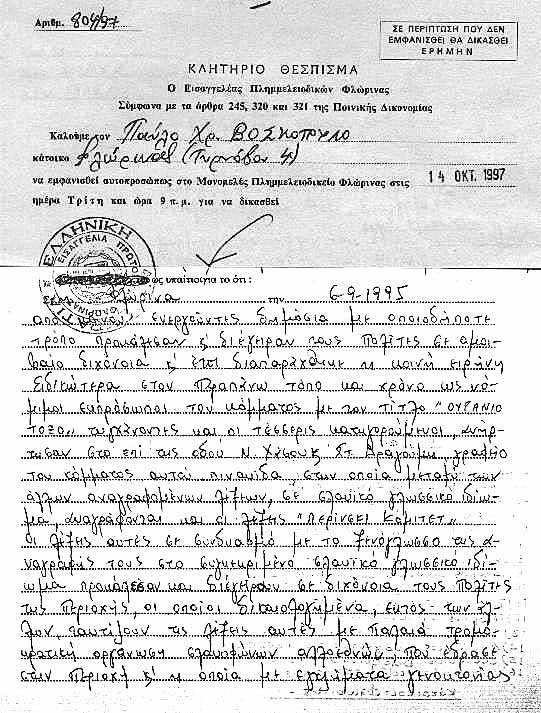 Αριθμ. 804/97
ΣΕ ΠΕΡΙΠΤΩΣΗ ΠΟΥ ΔΕΝ
ΕΜΦΑΝΙΣΘΕΙ ΘΑ ΔΙΚΑΣΘΕΙ
ΕΡΗΜΗΝ
ΚΛΗΤΗΡΙΟ ΘΕΣΠΙΣΜΑ
Ο Εισαγγελέας Πλημμελειοδικών Φλώρινας
Σύμφωνα με τα άρθρα 245, 320 και 321 της Ποινικής Δικονομίας
Καλούμε τον Παύλο Χρ. ΒΟΣΚΟΠΟΥΛΟ
κάτοικο Φλώρινας (Τυρνόβου 4)
να εμφανισθεί αυτοπροσώπως στο Μονομελές Πλημμελειοδικείο Φλώρινας στις 14 ΟΚΤ. 1997
ημέρα Τρίτη και ώρα 9 π.μ. για να δικασθεί
ΕΛΛΗΝΙΚΗ
ΕΙΣΑΓΓΕΛΙΑ ΠΡΩΤΟ
ως υπαίτιο για το ότι :
Φλώρινα την 6-9-1995
από ενεργούντες δημόσια με οποιοδήποτε
τρόπο προκάλεσαν κ' διέγειραν τους πολίτες σε αμοι-
βαία διχόνοια κ' έτσι διαταράχθηκε η κοινή ειρήνη
Ειδικώτερα στον παραπάνω τόπο και χρόνο ως νό-
μιμοι εκπρόσωποι του κόμματος με τον τίτλο "ΟΥΡΑΝΙΟ
ΤΟΞΟ" τυγχάνοντες και οι τέσσερις κατηγορούμενοι, ανήρ-
τησαν στο επί της οδού Στ. Δραγούμη γραφείο
του κόμματος αυτού πινακίδα, στην οποία μεταξύ των
άλλων αναγραφομένων λέξεων, σε σλαυικό γλωσσικό ιδίω-
μα, αναγράφονται και οι λέξεις "ΛΕΡΙΝΣΚΙ ΚΟΜΙΤΕΤ"
οι λέξεις αυτές σε συνδυασμό με το ξενόγλωσσο της α-
ναγραφής τους στο συγκεκριμένο σλαυικό γλωσσικό ιδί-
ωμα προκάλεσαν και διέγειραν σε διχόνοια τους πολίτες
της περιοχής, οι οποίοι δικαιολογημένα, εκτός των άλ-
λων, ταυτίζουν τις λέξεις αυτές με παλαιά τρομο-
κρατική οργάνωση σλαυοφώνων αλλοεθνών, που έδρασε
στην περιοχή κ' η οποία με εγκλήματα γενοκτονίας